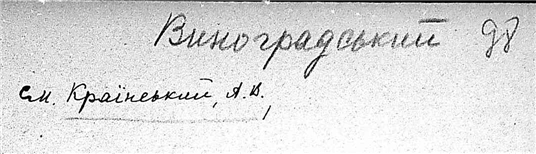 Виноградський 98
см. Країнський, А.В.,